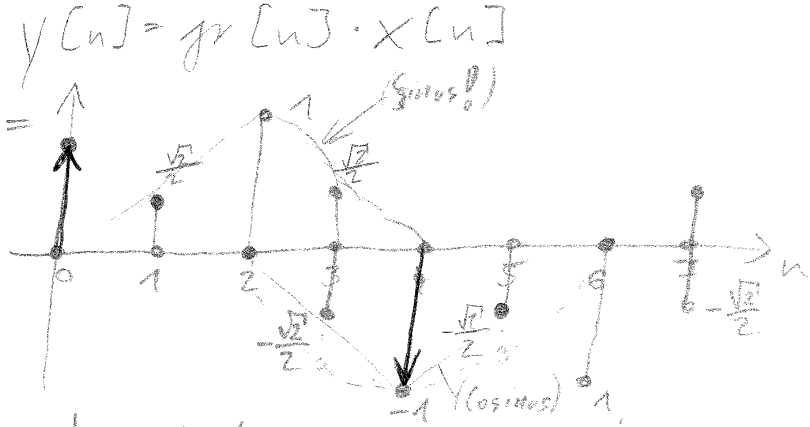 y[n] = gr[n] · x[n]
=
1 (sinus!)
√2/2 √2/2
0 1 2 3 5 6 n
-√2/2 -√2/2 -√2/2
-1 (Cosinus) 1